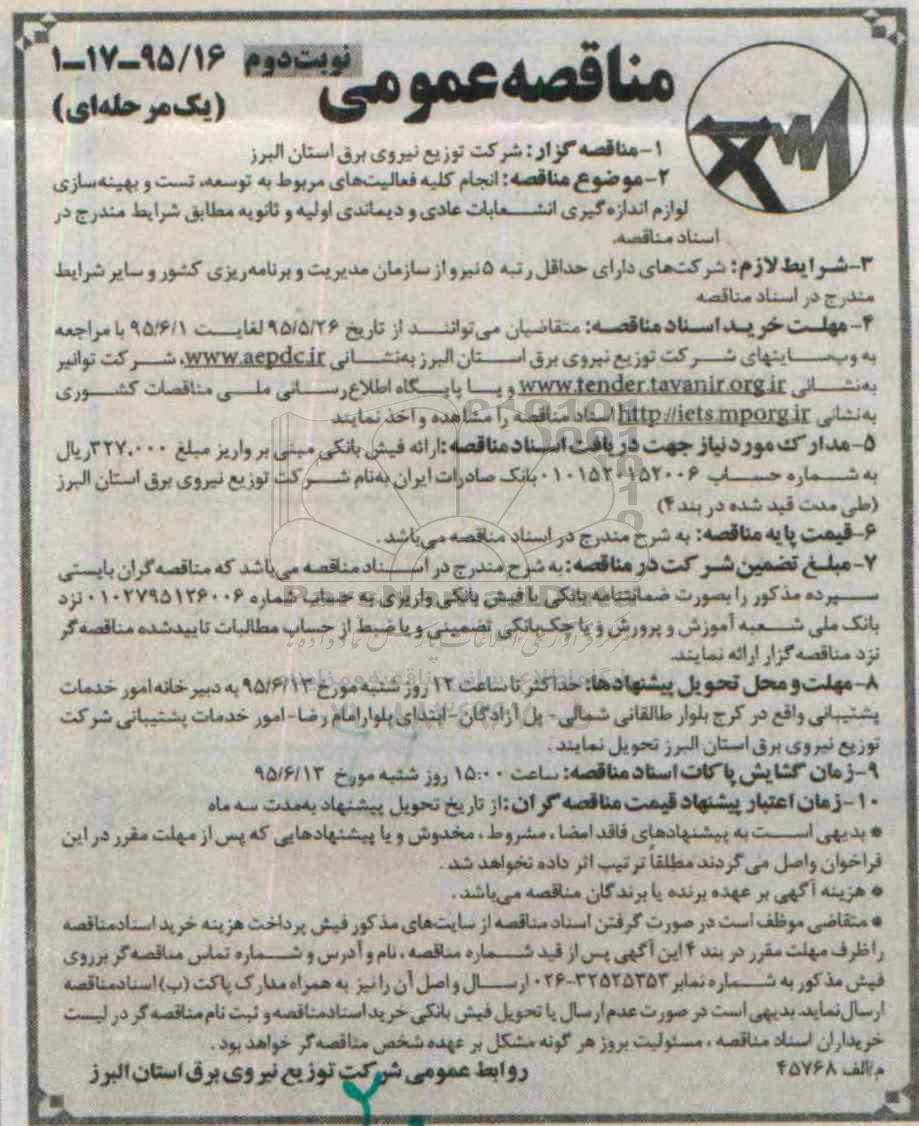 مناقصه عمومی
نوبت دوم
۹۵/۱۶–۱۷–۱
(یک مرحله‌ای)
۱-مناقصه گزار: شرکت توزیع نیروی برق استان البرز
۲-موضوع مناقصه: انجام کلیه فعالیت‌های مربوط به توسعه، تست و بهینه‌سازی
لوازم اندازه‌گیری انشعابات عادی و دیماندی اولیه و ثانویه مطابق شرایط مندرج در
اسناد مناقصه.
۳-شرایط لازم: شرکت‌های دارای حداقل رتبه ۵ نیرو از سازمان مدیریت و برنامه‌ریزی کشور و سایر شرایط
مندرج در اسناد مناقصه
۴-مهلت خرید اسناد مناقصه: متقاضیان می‌توانند از تاریخ ۹۵/۵/۲۶ لغایت ۹۵/۶/۱ با مراجعه
به وبسایتهای شرکت توزیع نیروی برق استان البرز به‌نشانی www.aepdc.ir، شرکت توانیر
به‌نشانی www.tender.tavanir.org.ir و یا پایگاه اطلاع‌رسانی ملی مناقصات کشوری
به‌نشانی http://iets.mporg.ir اسناد مناقصه را مشاهده و اخذ نمایند
۵-مدارک مورد نیاز جهت دریافت اسناد مناقصه: ارائه فیش بانکی مبنی بر واریز مبلغ ۳۲۷.۰۰۰ ریال
به شماره حساب ۰۱۰۱۵۲۰۱۵۲۰۰۶ بانک صادرات ایران به‌نام شرکت توزیع نیروی برق استان البرز
(طی مدت قید شده در بند ۴)
۶-قیمت پایه مناقصه: به شرح مندرج در اسناد مناقصه می‌باشد.
۷-مبلغ تضمین شرکت در مناقصه: به شرح مندرج در اسناد مناقصه می‌باشد که مناقصه‌گران بایستی
سپرده مذکور را بصورت ضمانتنامه بانکی یا فیش بانکی واریزی به حساب شماره ۰۱۰۲۷۹۵۱۲۶۰۰۶ نزد
بانک ملی شعبه آموزش و پرورش و یا چک‌بانکی تضمینی و یا ضبط از حساب مطالبات تاییدشده مناقصه‌گر
نزد مناقصه‌گزار ارائه نمایند.
۸-مهلت و محل تحویل پیشنهادها: حداکثر تا ساعت ۱۲ روز شنبه مورخ ۹۵/۶/۱۳ به دبیرخانه امور خدمات
پشتیبانی واقع در کرج بلوار طالقانی شمالی- پل آزادگان- ابتدای بلوار امام رضا- امور خدمات پشتیبانی شرکت
توزیع نیروی برق استان البرز تحویل نمایند.
۹-زمان گشایش پاکات اسناد مناقصه: ساعت ۱۵:۰۰ روز شنبه مورخ ۹۵/۶/۱۳
۱۰-زمان اعتبار پیشنهاد قیمت مناقصه گران: از تاریخ تحویل پیشنهاد به‌مدت سه ماه
* بدیهی است به پیشنهادهای فاقد امضا، مشروط، مخدوش و یا پیشنهادهایی که پس از مهلت مقرر در این
فراخوان واصل می‌گردند مطلقاً ترتیب اثر داده نخواهد شد.
* هزینه آگهی بر عهده برنده یا برندگان مناقصه می‌باشد.
* متقاضی موظف است در صورت گرفتن اسناد مناقصه از سایت‌های مذکور فیش پرداخت هزینه خرید اسنادمناقصه
را ظرف مهلت مقرر در بند ۴ این آگهی پس از قید شماره مناقصه، نام و آدرس و شماره تماس مناقصه‌گر برروی
فیش مذکور به شماره نمابر ۳۲۵۲۵۳۵۳-۰۲۶ ارسال و اصل آن را نیز به همراه مدارک پاکت (ب) اسنادمناقصه
ارسال‌نماید. بدیهی است در صورت عدم ارسال یا تحویل فیش بانکی خرید اسنادمناقصه و ثبت نام مناقصه‌گر در لیست
خریداران اسناد مناقصه، مسئولیت بروز هر گونه مشکل بر عهده شخص مناقصه‌گر خواهد بود.
م/الف ۴۵۷۶۸
روابط عمومی شرکت توزیع نیروی برق استان البرز